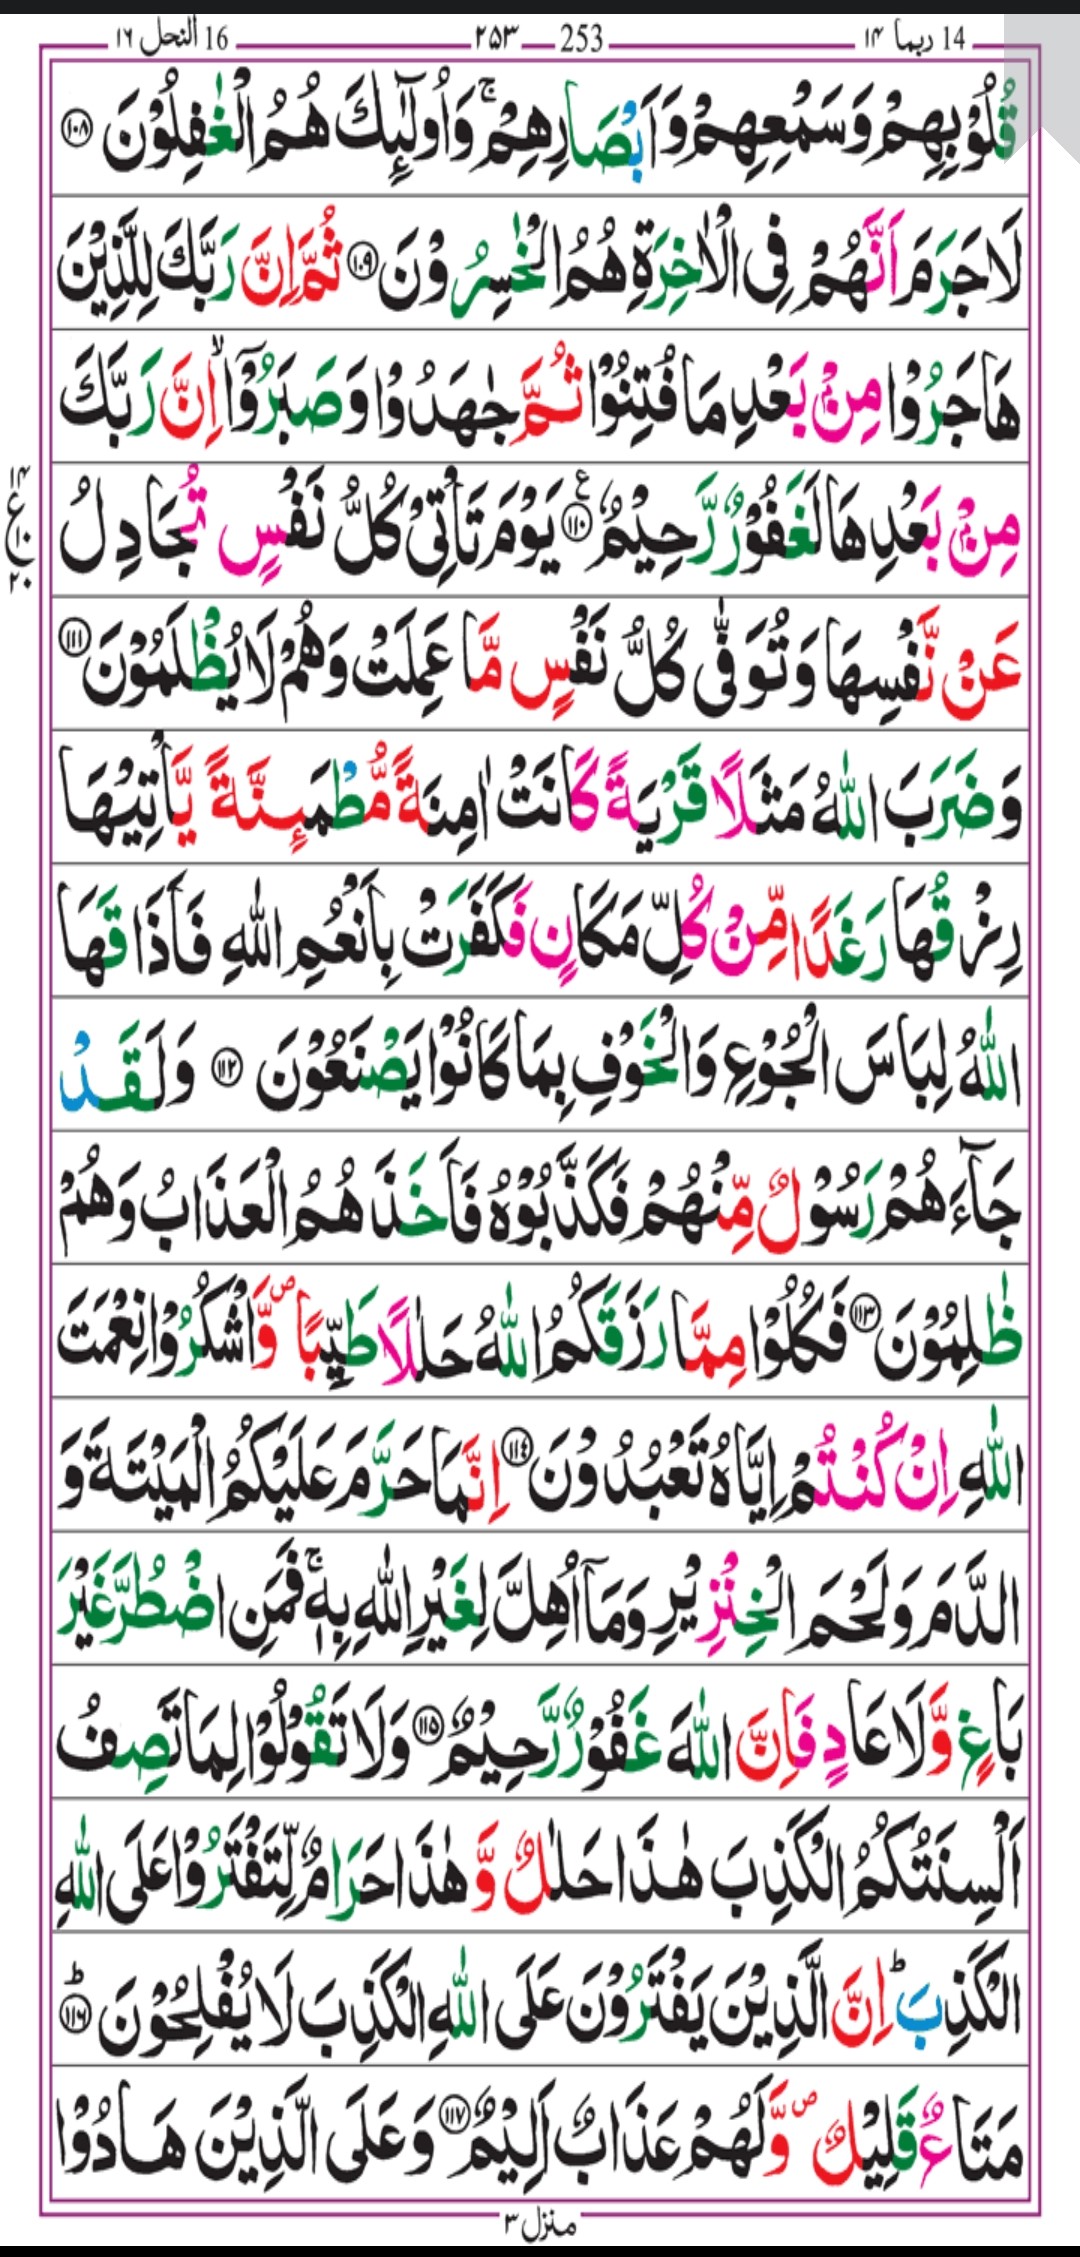 14 ربما ۱۴ 253 ۲۵۳ 16 النحل ۱۶
قُلُوْبِهِمْ وَسَمْعِهِمْ وَاَبْصَارِهِمْ ۚ وَاُولٰٓئِكَ هُمُ الْغٰفِلُوْنَ ۝۱۰۸
لَا جَرَمَ اَنَّهُمْ فِى الْاٰخِرَةِ هُمُ الْخٰسِرُوْنَ ۝۱۰۹ ثُمَّ اِنَّ رَبَّكَ لِلَّذِيْنَ
هَاجَرُوْا مِنْۢ بَعْدِ مَا فُتِنُوْا ثُمَّ جٰهَدُوْا وَصَبَرُوْۤا ۙ اِنَّ رَبَّكَ
مِنْۢ بَعْدِهَا لَغَفُوْرٌ رَّحِيْمٌ ۝۱۱۰ ع يَوْمَ تَاْتِىْ كُلُّ نَفْسٍ تُجَادِلُ
۱۴ ع ۱۰ ۲۰
عَنْ نَّفْسِهَا وَتُوَفّٰى كُلُّ نَفْسٍ مَّا عَمِلَتْ وَهُمْ لَا يُظْلَمُوْنَ ۝۱۱۱
وَضَرَبَ اللّٰهُ مَثَلًا قَرْيَةً كَانَتْ اٰمِنَةً مُّطْمَىِٕنَّةً يَّاْتِيْهَا
رِزْقُهَا رَغَدًا مِّنْ كُلِّ مَكَانٍ فَكَفَرَتْ بِاَنْعُمِ اللّٰهِ فَاَذَاقَهَا
اللّٰهُ لِبَاسَ الْجُوْعِ وَالْخَوْفِ بِمَا كَانُوْا يَصْنَعُوْنَ ۝۱۱۲ وَلَقَدْ
جَآءَهُمْ رَسُوْلٌ مِّنْهُمْ فَكَذَّبُوْهُ فَاَخَذَهُمُ الْعَذَابُ وَهُمْ
ظٰلِمُوْنَ ۝۱۱۳ فَكُلُوْا مِمَّا رَزَقَكُمُ اللّٰهُ حَلٰلًا طَيِّبًا ۪ وَّاشْكُرُوْا نِعْمَتَ
اللّٰهِ اِنْ كُنْتُمْ اِيَّاهُ تَعْبُدُوْنَ ۝۱۱۴ اِنَّمَا حَرَّمَ عَلَيْكُمُ الْمَيْتَةَ وَ
الدَّمَ وَلَحْمَ الْخِنْزِيْرِ وَمَاۤ اُهِلَّ لِغَيْرِ اللّٰهِ بِهٖ ۚ فَمَنِ اضْطُرَّ غَيْرَ
بَاغٍ وَّلَا عَادٍ فَاِنَّ اللّٰهَ غَفُوْرٌ رَّحِيْمٌ ۝۱۱۵ وَلَا تَقُوْلُوْا لِمَا تَصِفُ
اَلْسِنَتُكُمُ الْكَذِبَ هٰذَا حَلٰلٌ وَّهٰذَا حَرَامٌ لِّتَفْتَرُوْا عَلَى اللّٰهِ
الْكَذِبَ ؕ اِنَّ الَّذِيْنَ يَفْتَرُوْنَ عَلَى اللّٰهِ الْكَذِبَ لَا يُفْلِحُوْنَ ؕ ۝۱۱۶
مَتَاعٌ قَلِيْلٌ ۪ وَّلَهُمْ عَذَابٌ اَلِيْمٌ ۝۱۱۷ وَعَلَى الَّذِيْنَ هَادُوْا
منزل ۳